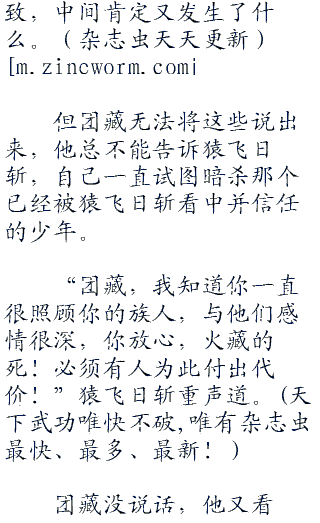 致，中间肯定又发生了什
么。（杂志虫天天更新）
[m.zincworm.com|
但团藏无法将这些说出
来，他总不能告诉猿飞日
斩，自己一直试图暗杀那个
已经被猿飞日斩看中并信任
的少年。
“团藏，我知道你一直
很照顾你的族人，与他们感
情很深，你放心，火藏的
死！必须有人为此付出代
价！”猿飞日斩重声道。(天
下武功唯快不破,唯有杂志虫
最快、最多、最新！)
团藏没说话，他又看